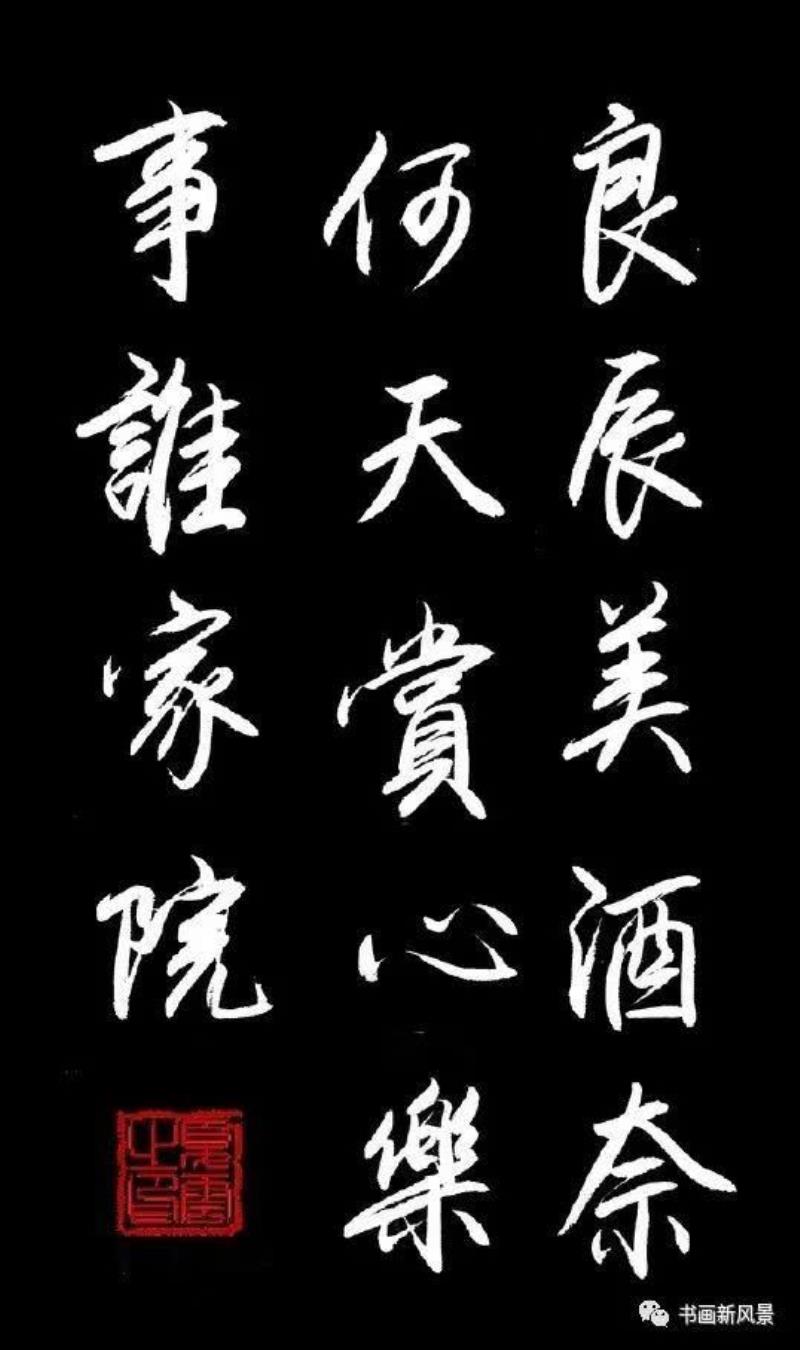 良辰美酒奈
何天賞心樂
事誰家院
书画新风景